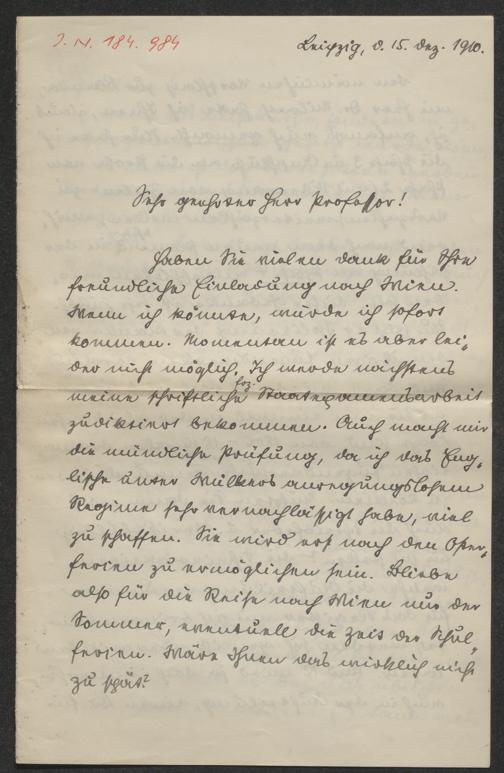 J. N. 184.984
Leipzig, d. 15. Dez. 1910.
Sehr geehrter Herr Professor!
Haben Sie vielen Dank für Ihre
freundliche Einladung nach Wien.
Wenn ich könnte, würde ich sofort
kommen. Momentan ist es aber lei-
der nicht möglich. Ich werde nächstens
meine schriftliche Staatsexamensarbeit
zudiktiert bekommen. Auch macht mir
die mündliche Prüfung, da ich das Eng-
lische unter Wülkers anregungslosem
Regime sehr vernachlässigt habe, viel
zu schaffen. Sie wird erst nach den Oster-
ferien zu ermöglichen sein. Bliebe
also für die Reise nach Wien nur der
Sommer, eventuell die Zeit der Schul-
ferien. Wäre Ihnen das wirklich nicht
zu spät?